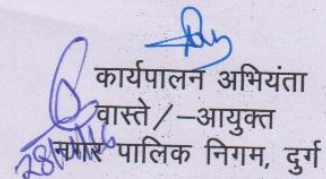 कार्यपालन अभियंता
वास्ते/-आयुक्त
नगर पालिक निगम, दुर्ग